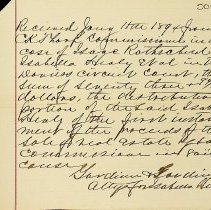 Received Jany 11th 1894 from
C.R. Sharp Commissioner in the
case of Isaac Rothschild
Isabella Healy &al in the
Daviess Circuit Court, the
Sum of Seventy three &
dollars, the distribution
portion of the said Isabella
Healy of the first instal
ment of the proceeds of the
sale of real estate of
Commissioner in said
cause
Gardiner &
Attys for Isabella Healy